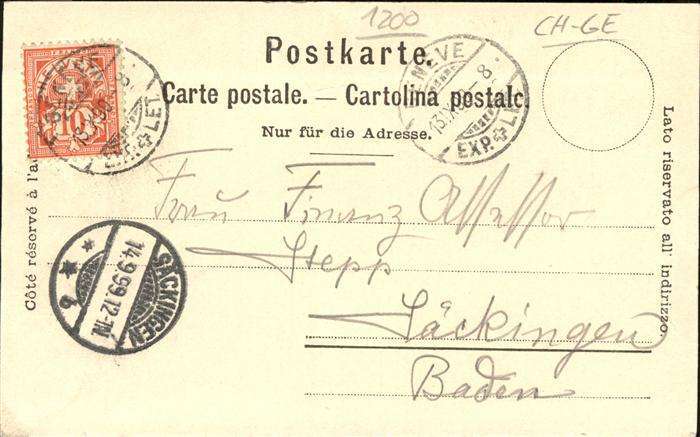 1200
CH-GE
Postkarte.
Carte postale. — Cartolina postale.
Nur für die Adresse.
Côté réservé à l'a
Lato riservato all' indirizzo.
HELVETIA
10
EXP. LET
NEVE
8
EXP. L
Frau Finanz Assessor
Stepp
Säckingen
Baden
SÄCKINGEN
14.9.99.12-1N